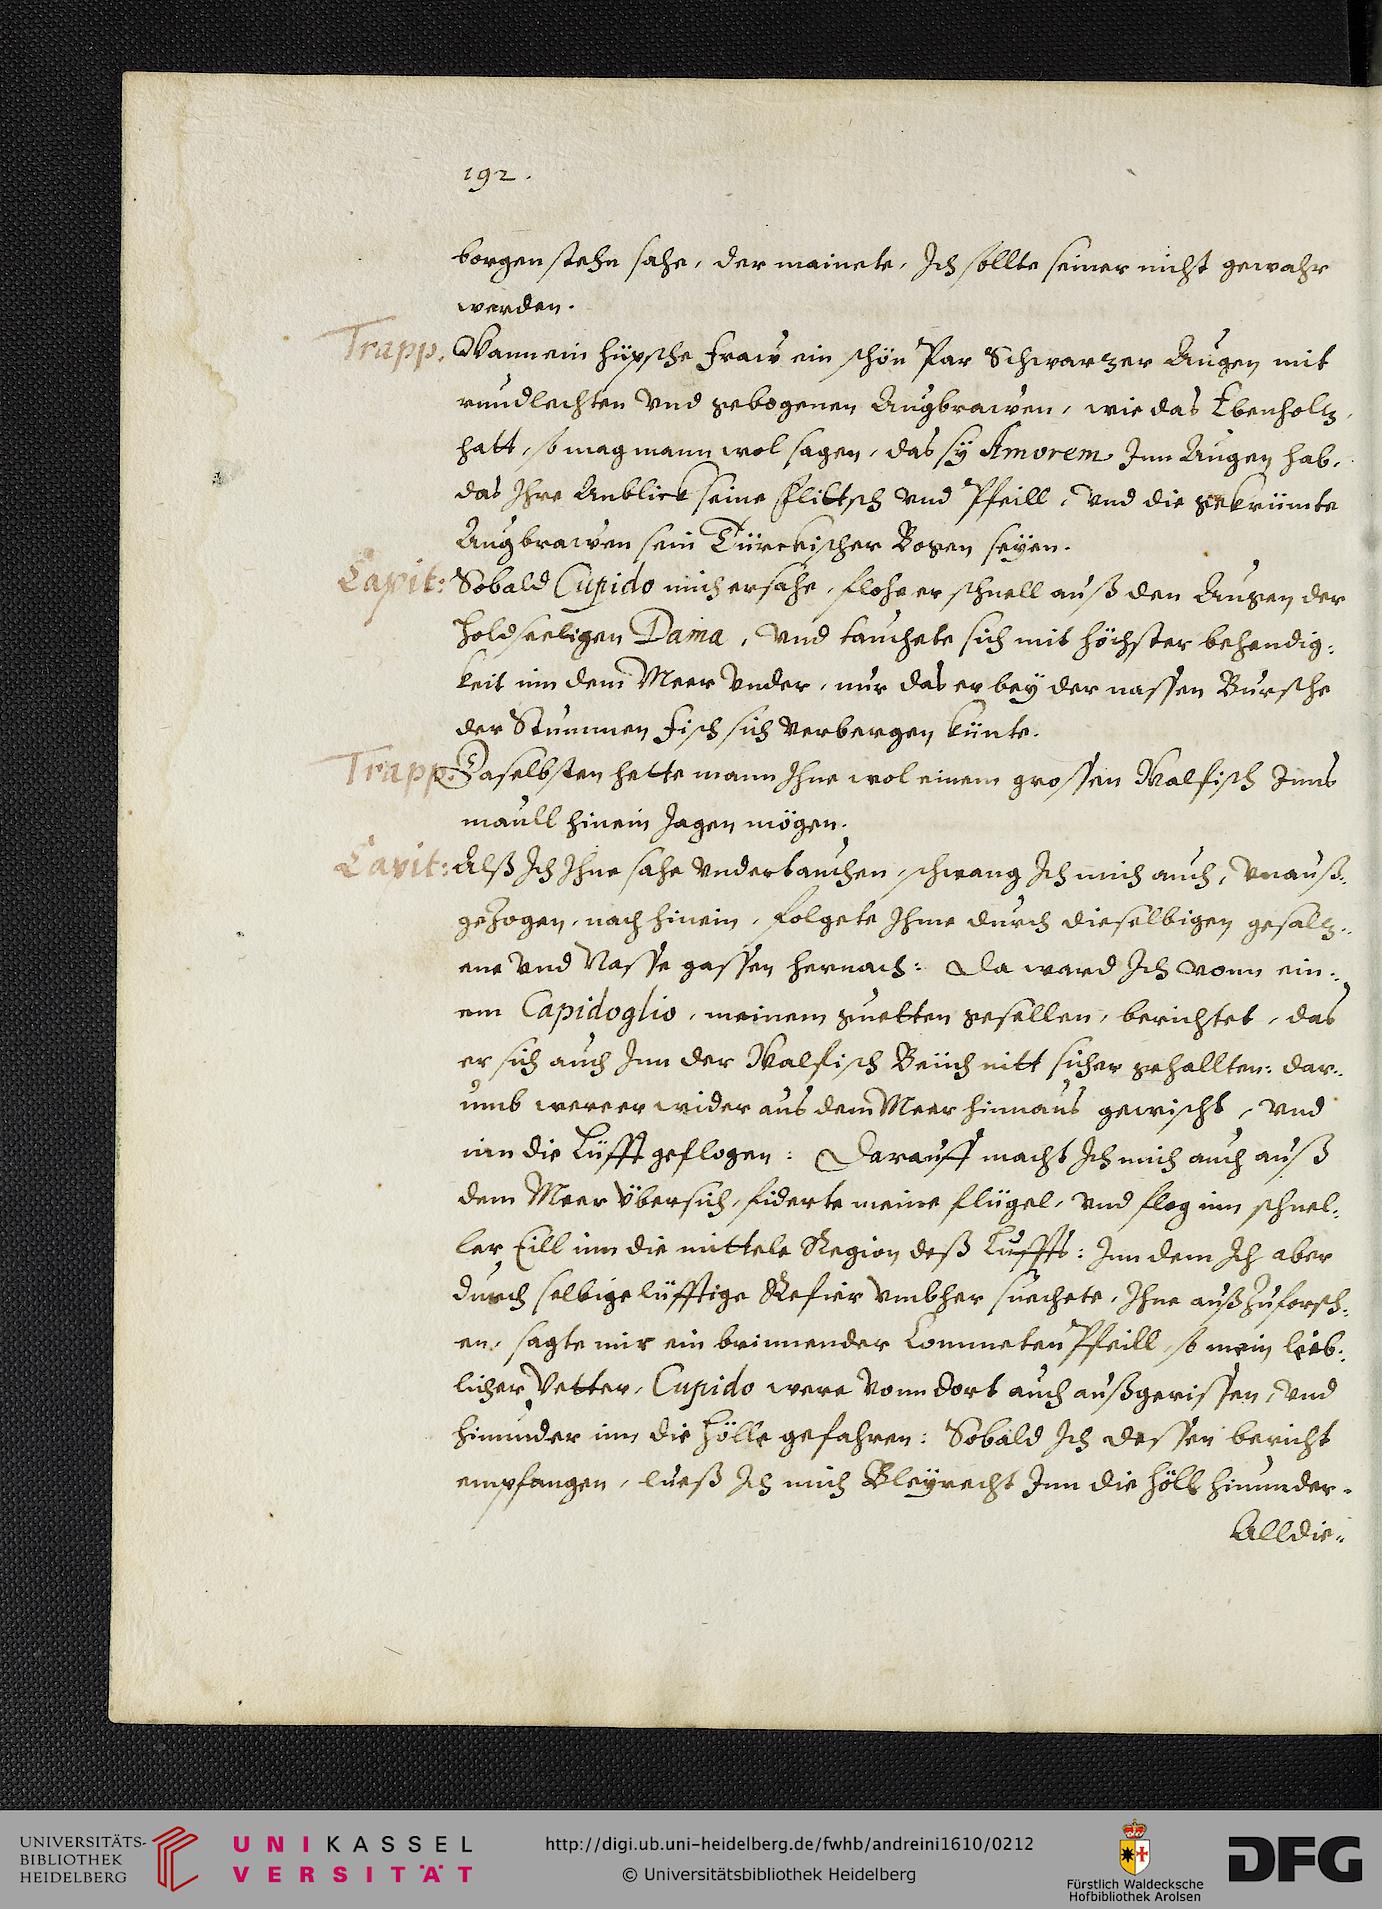 192.
borgen stehn sahe, der mainete, Ich sollte seiner nicht gewahr
werden.
Trapp. Wann ein hüpsche Fraw ein schön Par Schwarzer Augen mit
rundlechten vnd gebogenen Augbrawen, wie das Ebenholz,
hatt, so mag mann wol sagen, das sÿ Amorem Inn Augen hab,
das Ihre Anblick seine Flitsch vnd Pfeill, vnd die gekrümte
Augbrawen sein Türckischer Bogen seÿen.
Capit: Sobald Cupido mich ersahe, flohe er schnell auß den Augen der
holdseeligen Dama, vnd tauchete sich mit höchster behendig:
keit inn dem Meer vnder, nur das er beÿ der nassen Bursche
der Stummen Fisch sich verbergen künte.
Trapp. Daselbsten hette mann Ihne wol einem grossen Walfisch Inns
maull hinein Jagen mögen.
Capit: Alß Ich Ihne sahe vndertauchen, schwang Ich mich auch, vnauß:
gezogen, nach hinein, folgete Ihme durch dieselbigen gesalz:
ene vnd Nasse gassen hernach: Da ward Ich vonn ein:
em Capidoglio, meinem guetten gesellen, berichtet, das
er sich auch Inn der Walfisch Beüch nitt sicher gehallten: dar:
umb were er wider aus dem Meer hinnaus gewischt, vnd
inn die Lüfft geflogen: Darauff macht Ich mich auch auß
dem Meer übersich, fiderte meine flügel, vnd flog inn schnel:
ler Eill inn die mittele Region deß Luffts: Inn dem Ich aber
durch selbige lüfftige Refier vmbher suechete, Ihne außzuforsch:
en, sagte mir ein brinnender Commeten Pfeill, so mein leib:
licher Vetter, Cupido were vonn dort auch außgerissen, vnd
hinunder inn die Hölle gefahren: Sobald Ich dessen bericht
empfangen, lueß Ich mich Bleÿrecht Inn die Höll hinunder.
Alldie:
UNIVERSITÄTS-
BIBLIOTHEK
HEIDELBERG
UNIKASSEL
VERSITÄT
http://digi.ub.uni-heidelberg.de/fwhb/andreini1610/0212
© Universitätsbibliothek Heidelberg
Fürstlich Waldecksche
Hofbibliothek Arolsen
DFG